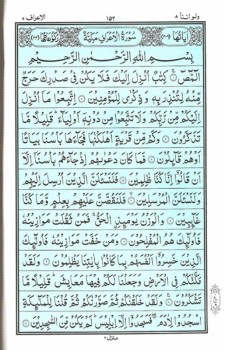 ولواننا ٨ ١٥٢ الاعراف ٧
سُورَةُ الْاَعْرَافِ مَكِّيَّةٌ
بِسْمِ اللّٰهِ الرَّحْمٰنِ الرَّحِيْمِ
الٓمّٓصٓ ۚ كِتٰبٌ اُنْزِلَ اِلَيْكَ فَلَا يَكُنْ فِيْ صَدْرِكَ حَرَجٌ
مِّنْهُ لِتُنْذِرَ بِهٖ وَذِكْرٰى لِلْمُؤْمِنِيْنَ ۝ اِتَّبِعُوْا مَآ اُنْزِلَ
اِلَيْكُمْ مِّنْ رَّبِّكُمْ وَلَا تَتَّبِعُوْا مِنْ دُوْنِهٖٓ اَوْلِيَآءَ ۭ قَلِيْلًا مَّا
تَذَكَّرُوْنَ ۝ وَكَمْ مِّنْ قَرْيَةٍ اَهْلَكْنٰهَا فَجَآءَهَا بَاْسُنَا بَيَاتًا
اَوْ هُمْ قَآئِلُوْنَ ۝ فَمَا كَانَ دَعْوٰىهُمْ اِذْ جَآءَهُمْ بَاْسُنَآ اِلَّآ
اَنْ قَالُوْٓا اِنَّا كُنَّا ظٰلِمِيْنَ ۝ فَلَنَسْـَٔلَنَّ الَّذِيْنَ اُرْسِلَ اِلَيْهِمْ
وَلَنَسْـَٔلَنَّ الْمُرْسَلِيْنَ ۝ فَلَنَقُصَّنَّ عَلَيْهِمْ بِعِلْمٍ وَّمَا كُنَّا
غَآئِبِيْنَ ۝ وَالْوَزْنُ يَوْمَئِذِ اۨلْحَقُّ ۚ فَمَنْ ثَقُلَتْ مَوَازِيْنُهٗ
فَاُولٰٓئِكَ هُمُ الْمُفْلِحُوْنَ ۝ وَمَنْ خَفَّتْ مَوَازِيْنُهٗ فَاُولٰٓئِكَ
الَّذِيْنَ خَسِرُوْٓا اَنْفُسَهُمْ بِمَا كَانُوْا بِاٰيٰتِنَا يَظْلِمُوْنَ ۝ وَلَقَدْ
مَكَّنّٰكُمْ فِي الْاَرْضِ وَجَعَلْنَا لَكُمْ فِيْهَا مَعَايِشَ ۭ قَلِيْلًا مَّا
تَشْكُرُوْنَ ۝ وَلَقَدْ خَلَقْنٰكُمْ ثُمَّ صَوَّرْنٰكُمْ ثُمَّ قُلْنَا لِلْمَلٰٓئِكَةِ
اسْجُدُوْا لِاٰدَمَ ۖ فَسَجَدُوْٓا اِلَّآ اِبْلِيْسَ ۭ لَمْ يَكُنْ مِّنَ السّٰجِدِيْنَ ۝
منزل ٢